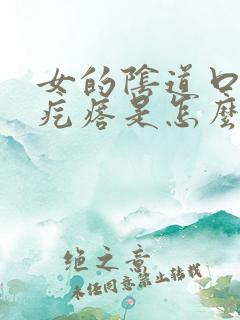 女的陰道口
疙瘩是怎麼
絕之意
未经同意禁止转载